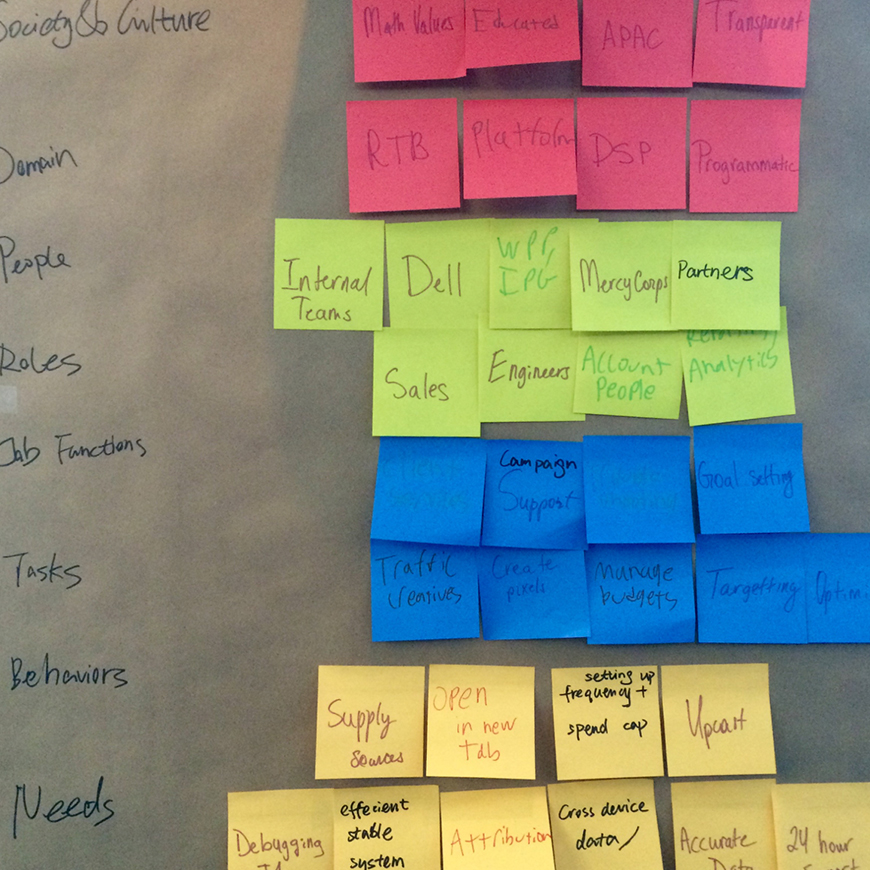 Society & Culture
Math Values
Educated
APAC
Transparent
Domain
RTB
Platform
DSP
Programmatic
People
Internal
Teams
Dell
WPP,
IPG
MercyCorps
Partners
Roles
Sales
Engineers
Account
People
Analytics
Job Functions
Client
Campaign
Support
Goal setting
Tasks
Traffic
Creatives
Create
pixels
Manage
budgets
Targetting
Optimi
Behaviors
Supply
Sources
Open
in new
Tab
setting up
frequency +
spend cap
Upcast
Needs
Debugging
effecient
stable
system
Attribution
Cross device
data/
Accurate
Data
24 hour